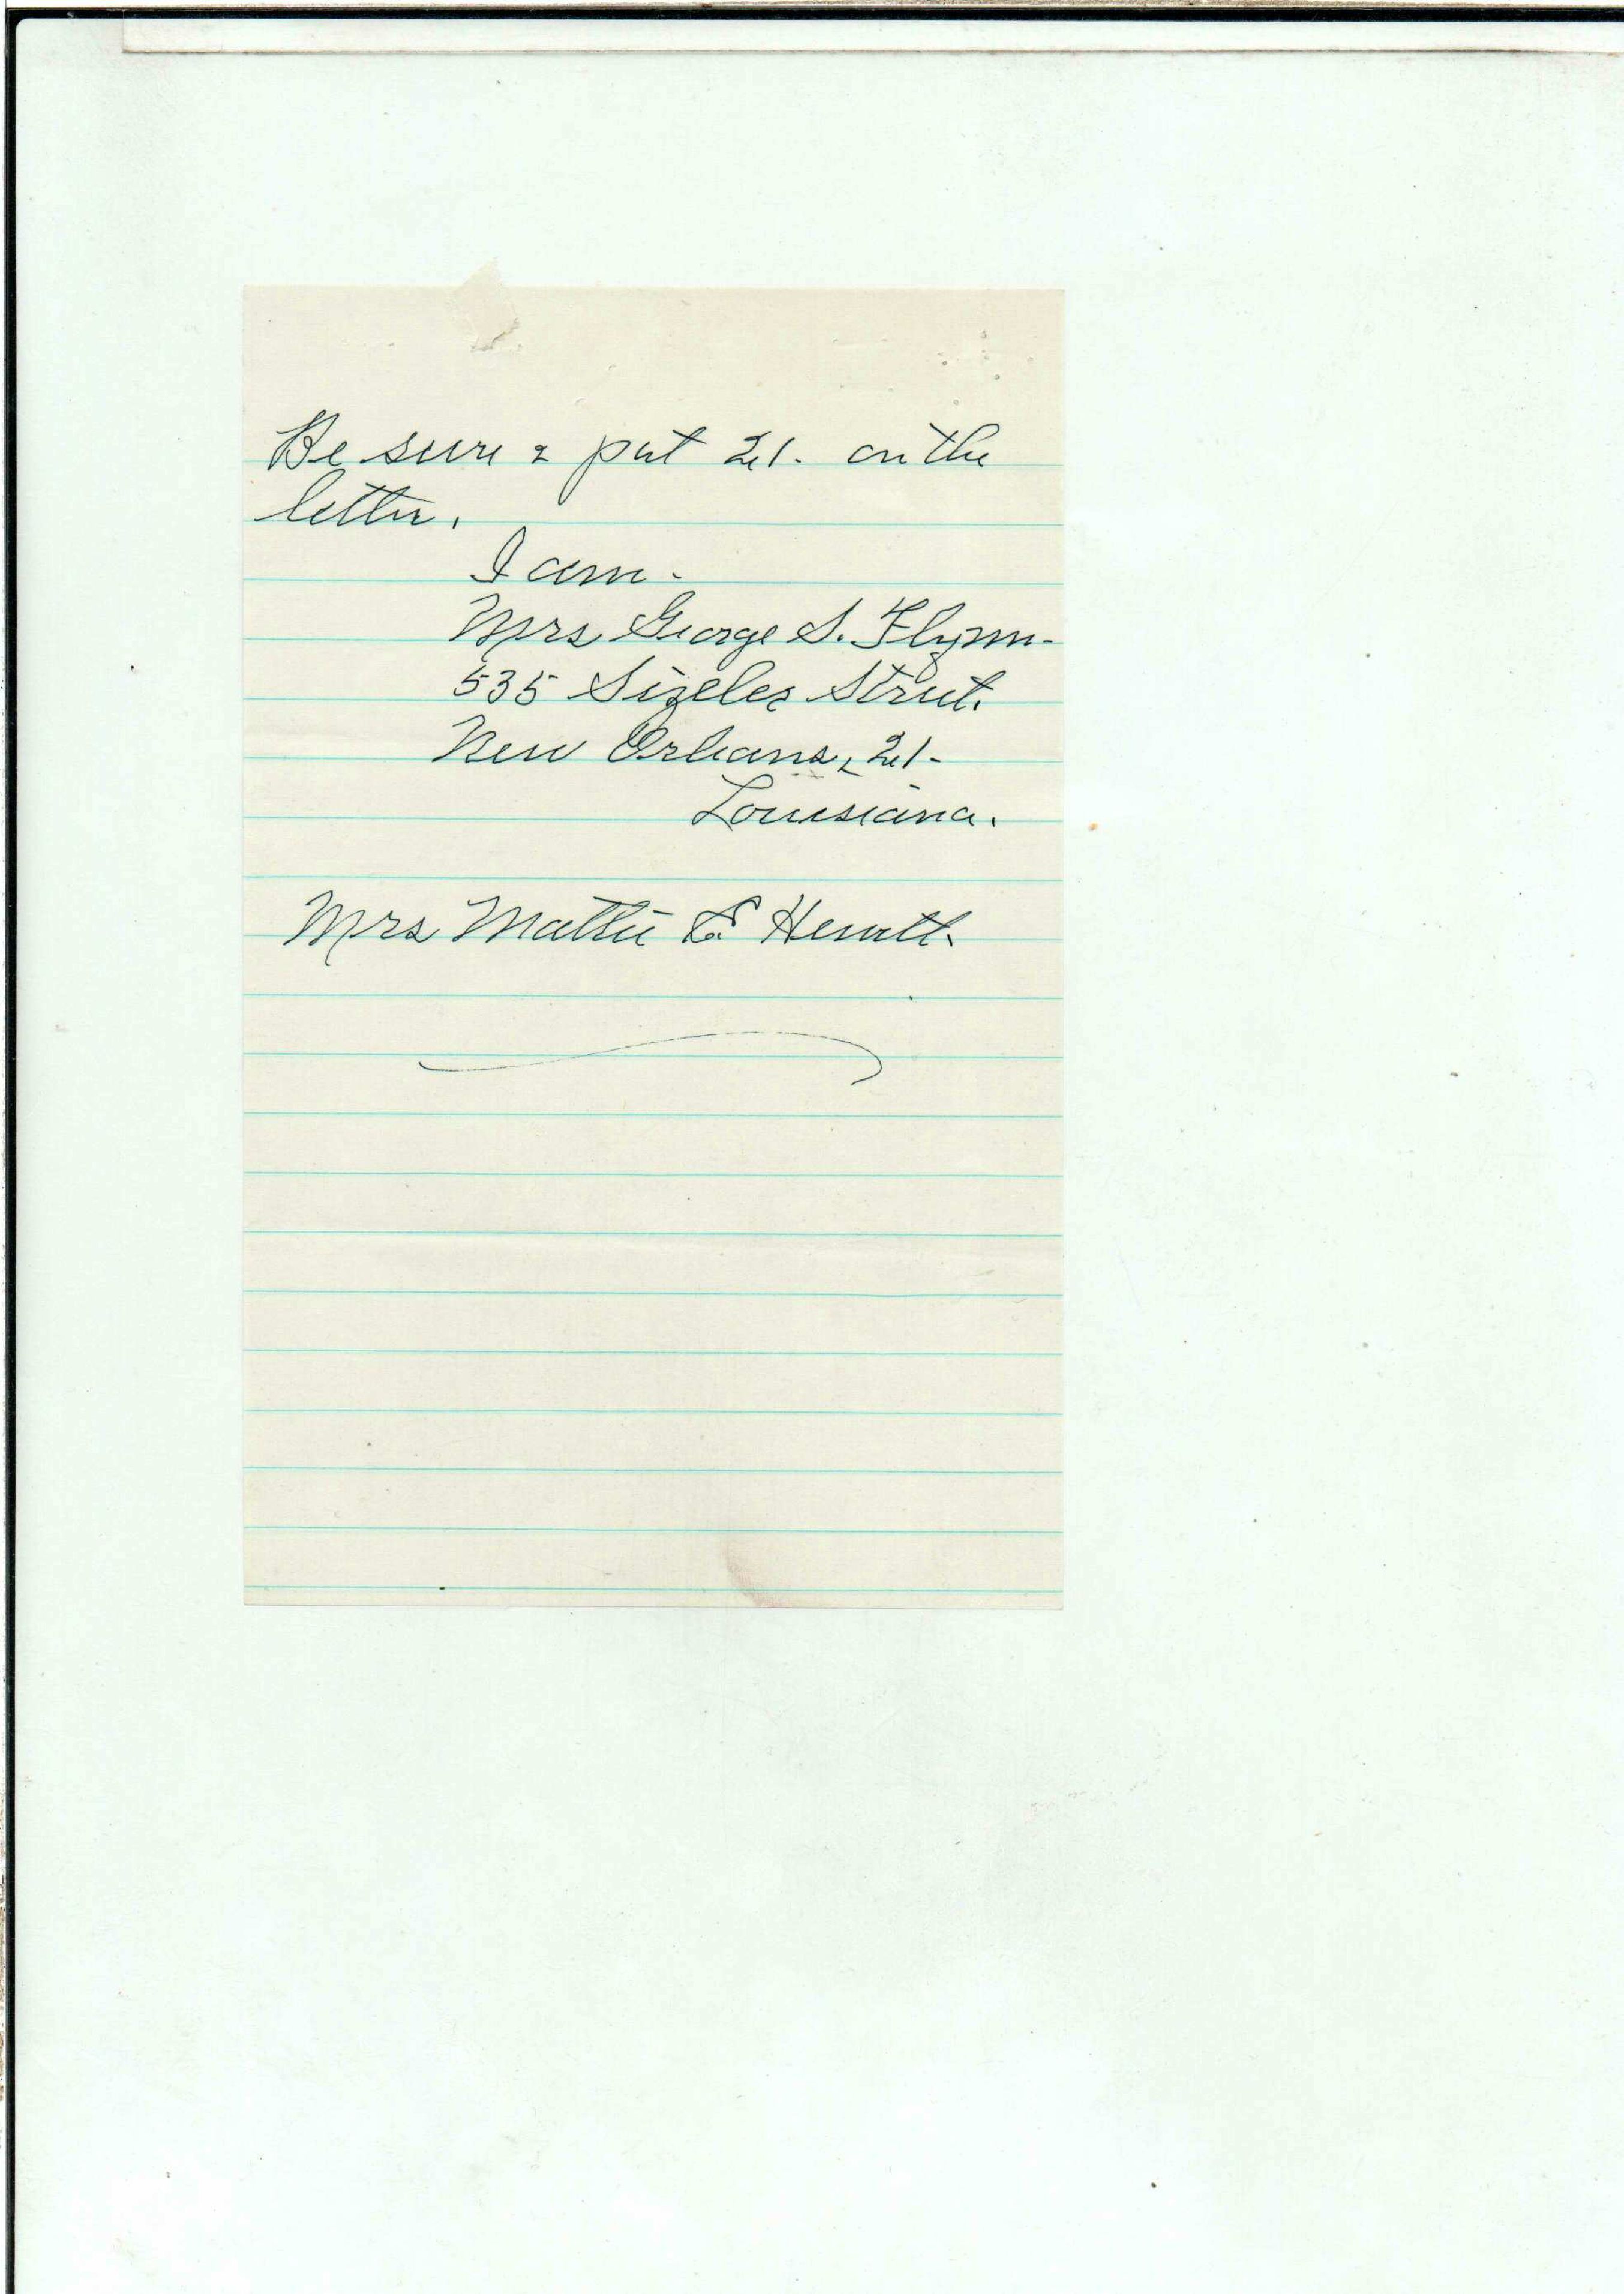 Be sure & put 21. on the
letter.
I am-
Mrs George S. Flynn-
535 Sizeler Street.
New Orleans, 21-
Louisiana.
Mrs Mattie E Hewett.